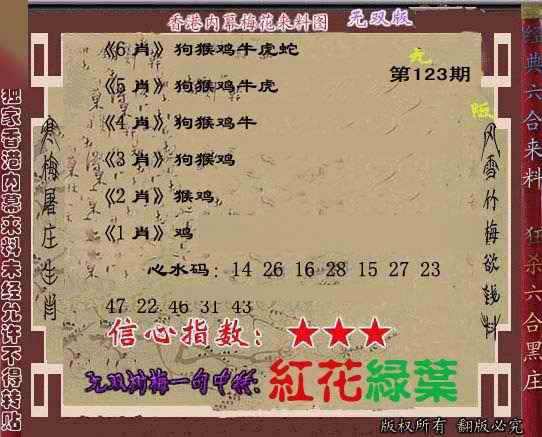 香港内幕梅花来料图 无双版
《6 肖》狗猴鸡牛虎蛇
无
第123期
《5 肖》狗猴鸡牛虎
版
《4 肖》狗猴鸡牛
《3 肖》狗猴鸡
《2 肖》猴鸡
《1 肖》鸡
心水码: 14 26 16 28 15 27 23
47 22 46 31 43
信心指数: ★★★
一句中特: 紅花綠葉
版权所有 翻版必究
独家香港内幕来料未经允许不得转贴
寒梅屠庄生肖
风雪竹梅欲钱料
经典六合来料
狂杀六合黑庄